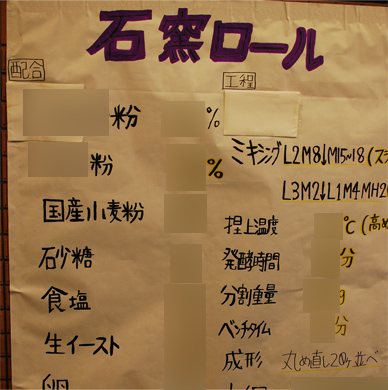 石窯ロール
配合
粉 %
粉 %
国産小麦粉
砂糖
食塩
生イースト
卵
工程
ミキシング L2M8↓M15~18(ス
L3M2↓L1M4MH2
捏上温度 ℃(高め
発酵時間 分
分割重量 g
ベンチタイム 分
成形 丸め直し20ヶ並べ